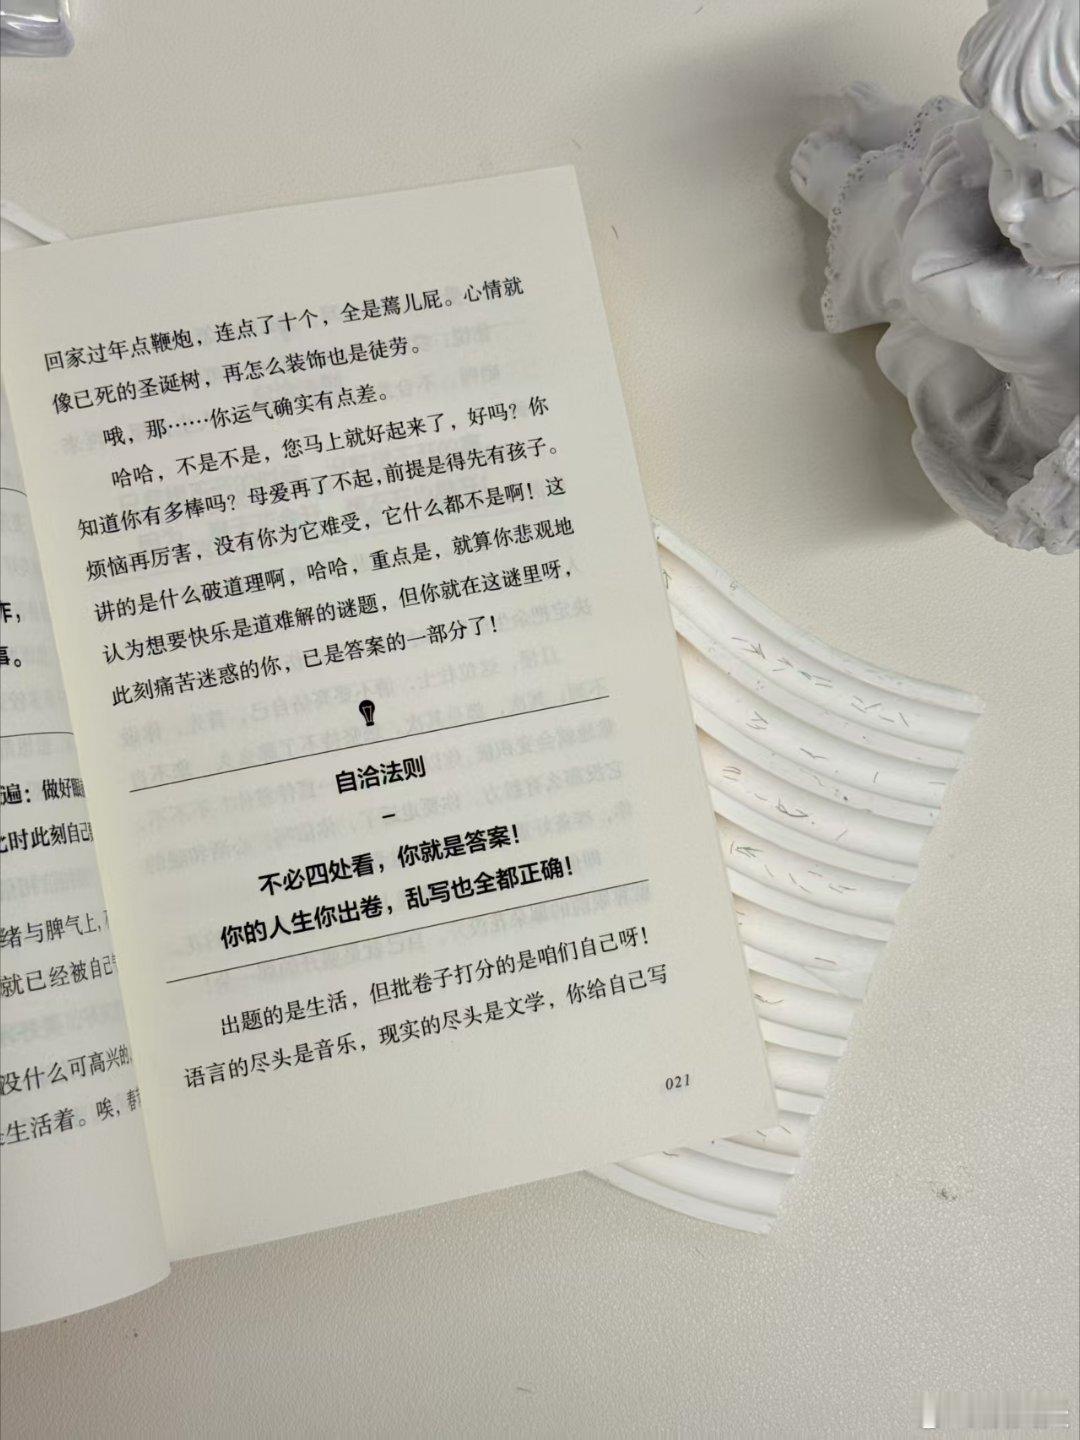 回家过年点鞭炮，连点了十个，全是蔫儿屁。心情就
像已死的圣诞树，再怎么装饰也是徒劳。
哦，那……你运气确实有点差。
哈哈，不是不是，您马上就好起来了，好吗？你
知道你有多棒吗？母爱再了不起，前提是得先有孩子。
烦恼再厉害，没有你为它难受，它什么都不是啊！这
讲的是什么破道理啊，哈哈，重点是，就算你悲观地
认为想要快乐是道难解的谜题，但你就在这谜里呀，
此刻痛苦迷惑的你，已是答案的一部分了！
自洽法则
–
不必四处看，你就是答案！
你的人生你出卷，乱写也全都正确！
出题的是生活，但批卷子打分的是咱们自己呀！
语言的尽头是音乐，现实的尽头是文学，你给自己写
021
事。
遍：做好眼
此时此刻自己
绪与脾气上，
就已经被自己
没什么可高兴的，
生活着。唉，春